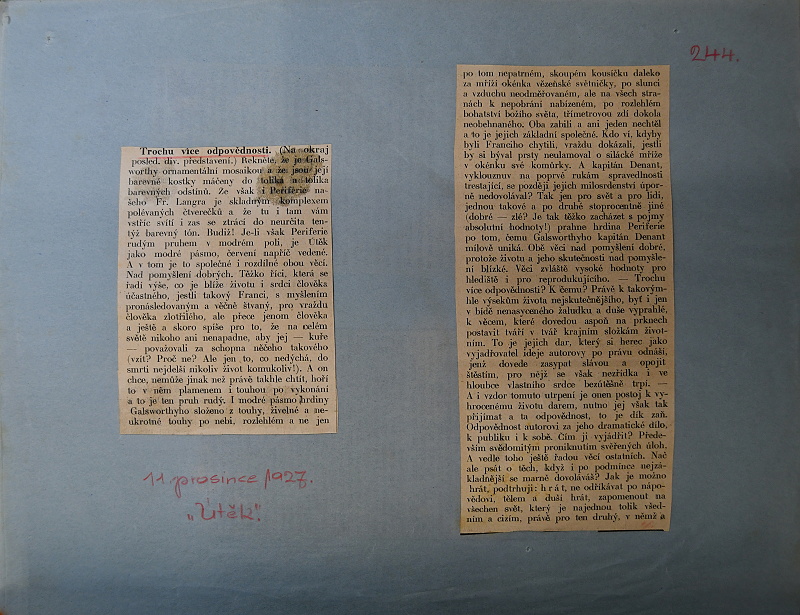 244.
Trochu více odpovědnosti. (Na okraj
posled. div. představení.) Řekněte, že je Gals-
worthy ornamentální mosaikou a že jsou její
barevné kostky máčeny do tolika a tolika
barevných odstínů. Že však i Periferie na-
šeho Fr. Langra je skladným komplexem
polévaných čtverečků a že tu i tam vám
vstříc svítí i zas se ztrácí do neurčita ten-
týž barevný tón. Budiž! Je-li však Periferie
rudým pruhem v modrém poli, je Útěk
jako modré pásmo, červení napříč vedené.
A v tom je to společné i rozdílné obou věcí.
Nad pomyšlení dobrých. Těžko říci, která se
řadí výše, co je blíže životu i srdci člověka
účastného, jestli takový Franci, s myšlením
pronásledovaným a věčně štvaný, pro vraždu
člověka zlotřilého, ale přece jenom člověka
a ještě a skoro spíše pro to, že na celém
světě nikoho ani nenapadne, aby jej — kuře
— považovali za schopna něčeho takového
(vzít? Proč ne? Ale jen to, co nedýchá, do
smrti nejdelší nikoliv život komukoliv!). A on
chce, nemůže jinak než právě takhle chtít, hoří
to v něm plamenem i touhou po vykonání
a to je ten pruh rudý. I modré pásmo hrdiny
Galsworthyho složeno z touhy, živelné a ne-
ukrotné touhy po nebi, rozlehlém a ne jen
11 prosince 1927.
„Útěk".
po tom nepatrném, skoupém kousíčku daleko
za mříží okénka vězeňské světničky, po slunci
a vzduchu neodměřovaném, ale na všech stra-
nách k nepobrání nabízeném, po rozlehlém
bohatství božího světa, třímetrovou zdí dokola
neobehnaného. Oba zabili a ani jeden nechtěl
a to je jejich základní společné. Kdo ví, kdyby
byli Franciho chytili, vraždu dokázali, jestli
by si býval prsty neulamoval o silácké mříže
v okénku své komůrky. A kapitán Denant,
vyklouznuv na poprvé rukám spravedlnosti
trestající, se později jejich milosrdenství úpor-
ně nedovolával? Tak jen pro svět a pro lidi,
jednou takové a po druhé stoprocentně jiné
(dobré — zlé? Je tak těžko zacházet s pojmy
absolutní hodnoty!) prahne hrdina Periferie
po tom, čemu Galsworthyho kapitán Denant
mílově uniká. Obě věci nad pomyšlení dobré,
protože životu a jeho skutečnosti nad pomyšle-
ní blízké. Věci zvláště vysoké hodnoty pro
hlediště i pro reprodukujícího. — Trochu
více odpovědnosti? K čemu? Právě k takovým-
hle výsekům života nejskutečnějšího, byť i jen
v bídě nenasyceného žaludku a duše vyprahlé,
k věcem, které dovedou aspoň na prknech
postavit tváří v tvář krajním složkám život-
ním. To je jejich dar, který si herec jako
vyjadřovatel ideje autorovy po právu odnáší,
jenž dovede zasypat slávou a opojit
štěstím, pro nějž se však nezřídka i ve
hloubce vlastního srdce bezútěšně trpí. —
A i vzdor tomuto utrpení je onen postoj k vy-
hrocenému životu darem, nutno jej však tak
přijímat a ta odpovědnost, to je dík zaň.
Odpovědnost autorovi za jeho dramatické dílo,
k publiku i k sobě. Čím ji vyjádřit? Přede-
vším svědomitým proniknutím svěřených úloh.
A vedle toho ještě řadou věcí ostatních. Nač
ale psát o těch, když i po podmínce nejzá-
kladnější se marně dovoláváš? Jak je možno
hrát, podtrhuji: hrát, ne odříkávat po nápo-
vědovi, tělem a duší hrát, zapomenout na
všechen svět, který je najednou tolik všed-
ním a cizím, právě pro ten druhý, v němž a